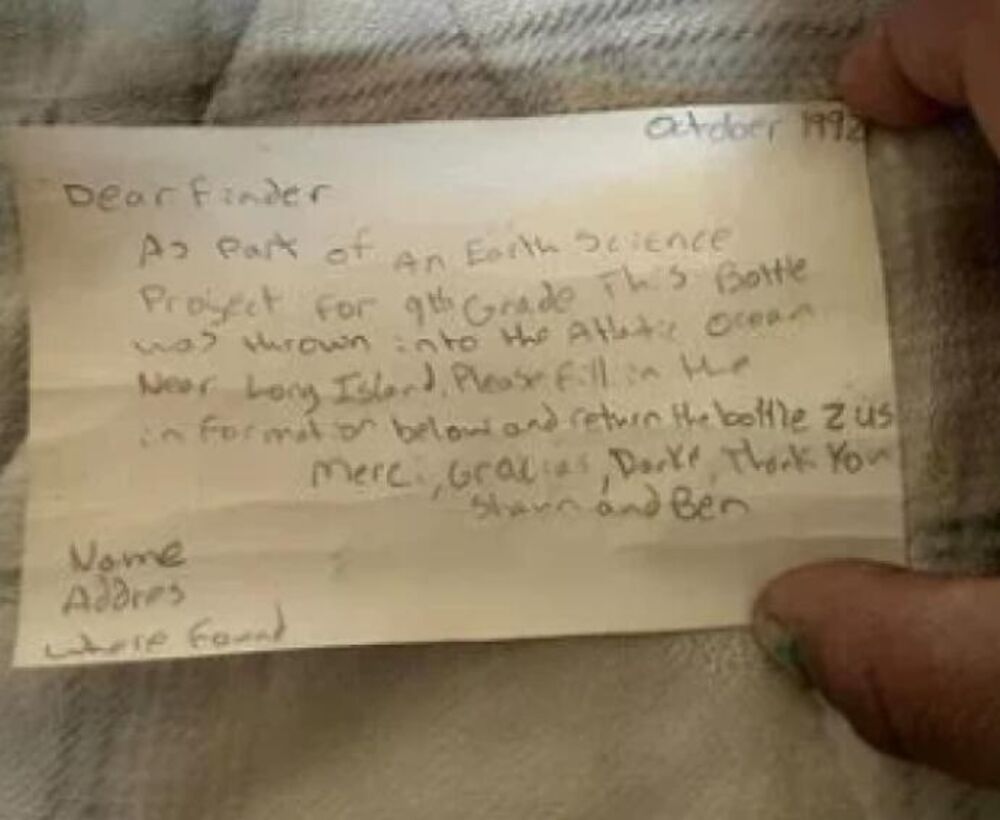 October 1992
Dear Finder
As Part of An Earth Science
Project For 9th Grade This Bottle
was thrown into the Atlantic Ocean
Near Long Island. Please fill in the
information below and return the bottle 2 us
Merci, Gracias, Danke, Thank You
Shawn and Ben
Name
Addres
where found